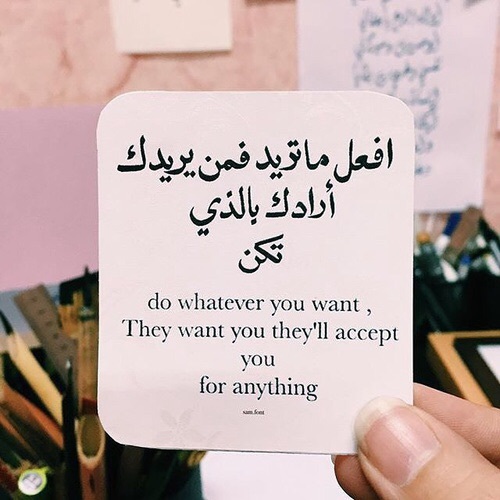 افعل ماتريد فمن يريدك
أرادك بالذي
تَكن
do whatever you want ,
They want you they'll accept
you
for anything
sam.font